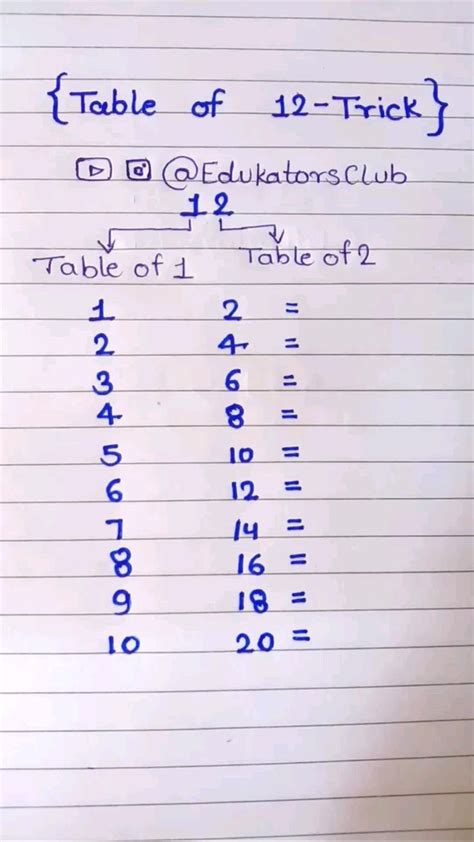 {Table of 12-Trick}
@EdukatorsClub
12
Table of 1 Table of 2
1 2 =
2 4 =
3 6 =
4 8 =
5 10 =
6 12 =
7 14 =
8 16 =
9 18 =
10 20 =